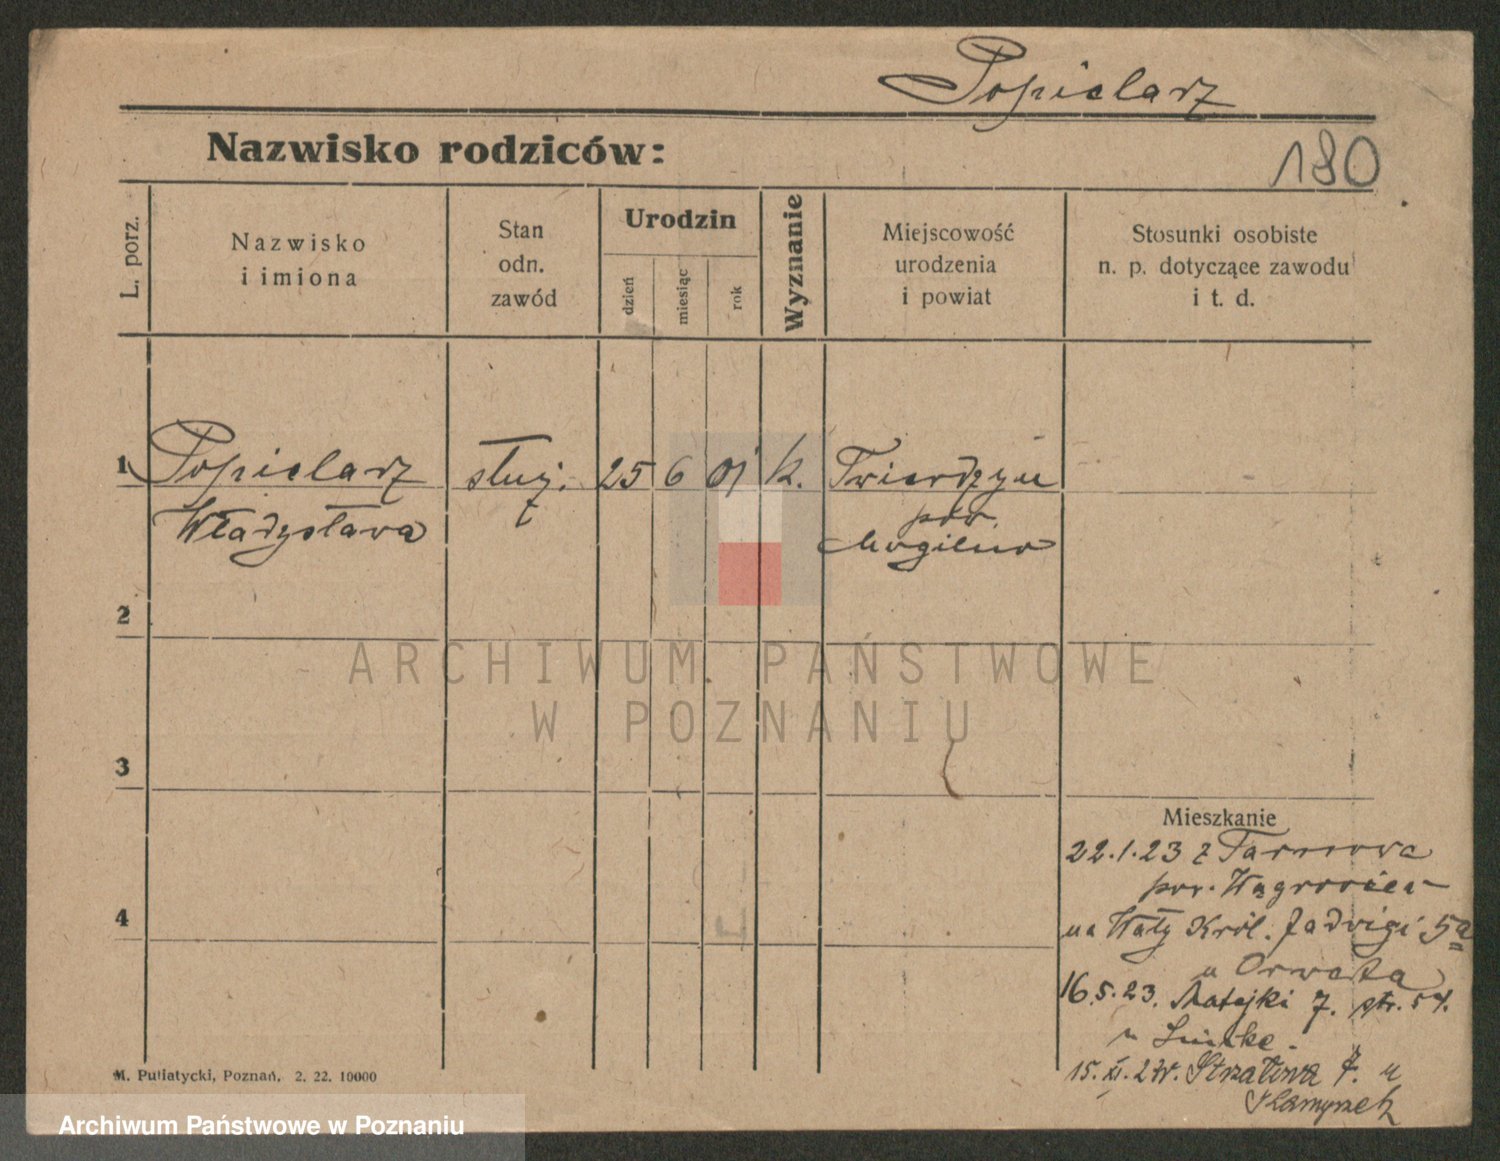 Popielarz
Nazwisko rodziców:
180
L. porz.
Nazwisko
i imiona
Stan
odn.
zawód
Urodzin
dzień
miesiąc
rok
Wyznanie
Miejscowość
urodzenia
i powiat
Stosunki osobiste
n. p. dotyczące zawodu
i t. d.
1 Popielarz służ. 25 6 01 k. Twierdzyn
Władysława pow.
Mogilno
2
ARCHIWUM PAŃSTWOWE
W POZNANIU
3
Mieszkanie
22.1.23 z Tarnowa
pow. Wągrowiec
4
na Wały Król. Jadwigi 5a
u Orwata
16.5.23. Matejki 7. str.
u
15.XI.24r. Strzałowa 7. u
M. Putiatycki, Poznań, 2. 22. 10000
Archiwum Państwowe w Poznaniu